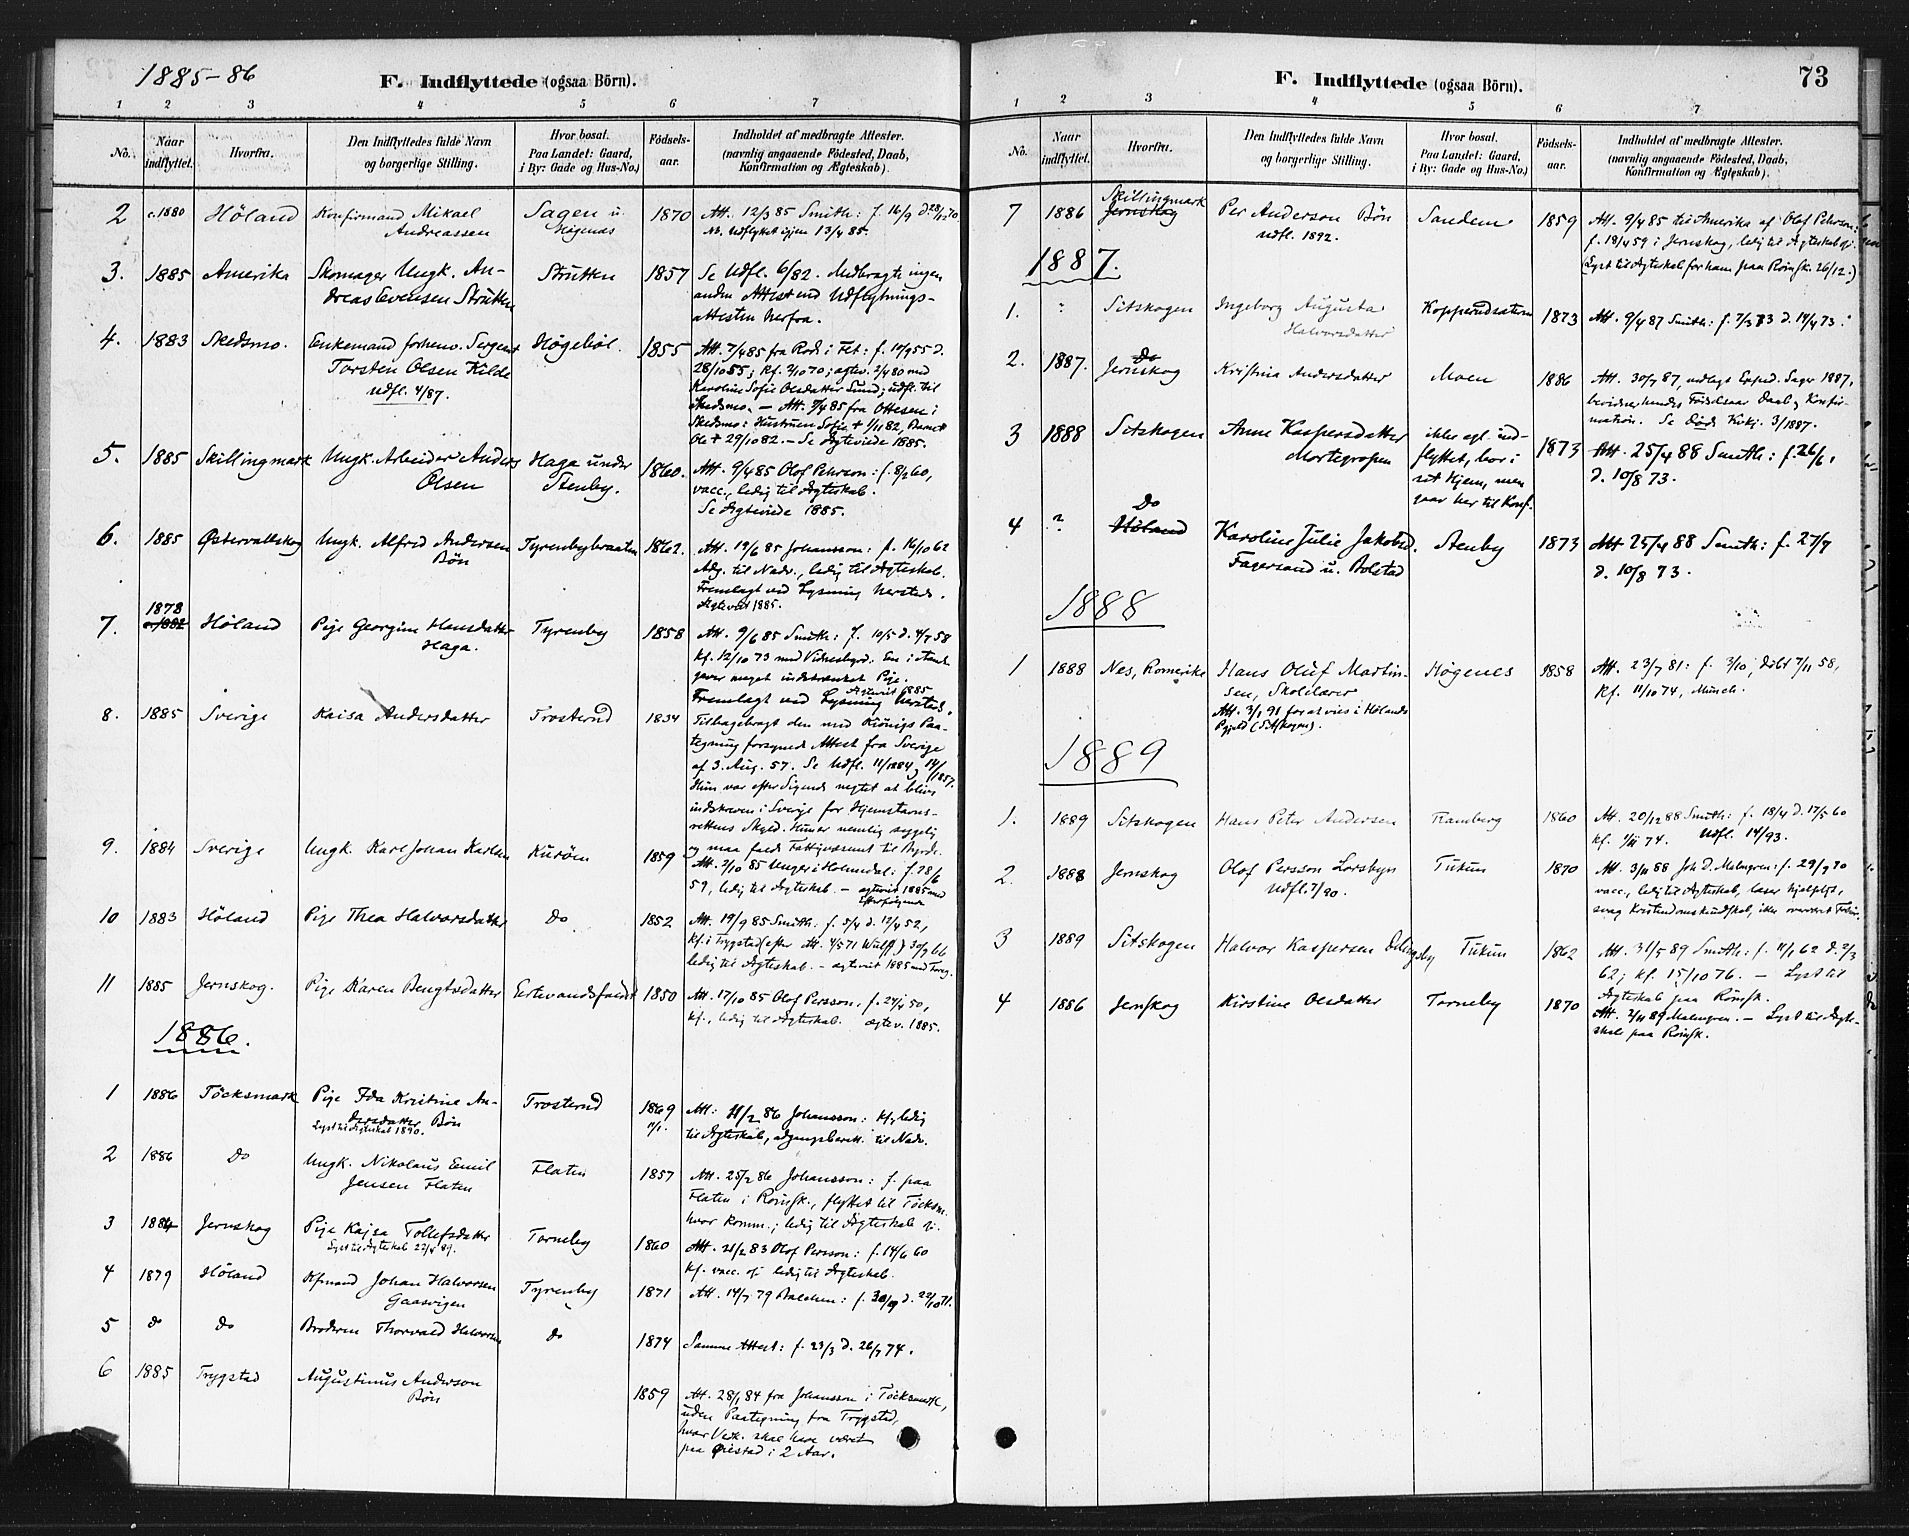 1885-86
F. Indflyttede (ogsaa Börn).
1 2 3 4 5 6 7
No.
Naar indflyttet.
Hvorfra.
Den Indflyttedes fulde Navn
og borgerlige Stilling.
Hvor bosat.
Paa Landet: Gaard,
i By: Gade og Hus-No.)
Födsels-
aar.
Indholdet af medbragte Attester.
(navnlig angaaende Födested, Daab,
Konfirmation og Ægteskab).
2 c. 1880 Höland Konfirmand Mikael Sagen u. 1870 Att. 12/3 85 Smith: f. 16/9 d. 28/12 70
Andreassen Högenæs Nb. Udflyttet igjen 13/4 85.
3. 1885 Amerika Skomager Ungk. An- Strutten 1857 Se Udfl. 6/82. Medbragte ingen
dreas Evensen Strutten anden Attest end Udflytnings-
attesten herfra.
4. 1883 Skedsmo. Enkemand forhenv. Sergeant Högeböl. 1855 Att. 7/4 85 fra Rode i Fet: f. 10/9 55 d.
Torsten Olsen Kilde 28/10 55; kf. 2/10 70; ægtev. 2/4 80 med
udfl. 4/87. Karoline Sofie Olsdatter Sund; udfl. til
Skedsmo. — Att. 7/4 85 fra Ottesen i
Skedsmo: Hustruen Sofie + 1/11 82, Barnet
Ole + 29/10 82. — Se Ægteviede 1885.
5. 1885 Skillingmark Ungk. Arbeider Anders Haga under 1860. Att. 9/4 85 Olof Pehrson: f. 8/2 60,
Olsen Stenby. vacc., ledig til Ægteskab.
Se Ægteviede 1885.
6. 1885 Östervallskog Ungk. Alfred Andersen Tyrenbybraaten 1862. Att. 19/6 85 Johansson: f. 16/10 62
Bön Adg. til Nadv., ledig til Ægteskab.
Fremlagt ved Lysning hersteds.
Ægteviet 1885.
1878
7. c. 1882 Höland Pige Georgine Hansdatter Tyrenby 1858 Att. 9/6 85 Smith: f. 10/5 d. 4/7 58
Haga. kf. 12/10 73 med Vidnesbyrd. En i Aands-
gaver meget indskrænket Pige.
Ægteviet 1885
Fremlagt ved Lysning hersteds.
8. 1885 Sverige Kaisa Andersdatter Trosterud 1834 Tilbagebragt den med Königs Paa-
tegning forsynede Attest fra Sverige
af 3. Aug. 57. Se Udfl. 11/1884, 14/1857.
Hun var efter Sigende negtet at blive
indskreven i Sverige for Hjemstavns-
rettens Skyld. Hun er nemlig sygelig
og maa falde Fattigvæsenet til Byrde.
9. 1884 Sverige Ungk. Karl Johan Karlsen Kuröen 1859 Att. 2/10 85 Unger i Holmedal: f. 28/6
59, ledig til Ægteskab. — ægteviet 1885 med
Efterfølgende
10 1883 Höland Pige Thea Halvorsdatter Do 1852 Att. 19/9 85 Smith: f. 5/4 d. 12/4 52,
kf. i Trygstad (efter Att. 4/5 71 Wulff) 30/9 66
ledig til Ægteskab. — ægteviet 1885 med Foreg.
11 1885 Jernskog. Pige Karen Bengtsdatter Eertevandsfaldet 1850 Att. 17/10 85 Olof Persson: f. 24/1 50,
kf., ledig til Ægteskab. ægtev. 1885.
1886.
1 1886 Töcksmark Pige Ida Kristine An- Trosterud 1869 Att: 11/2 86 Johansson: kf., ledig
dersdatter Bön 11/1. til Ægteskab, adgangsberett. til Nadv.
Lyst til Ægteskab 1890.
2 1886 Do Ungk. Nikolaus Emil Flaten 1857 Att. 25/2 86 Johansson: f. paa
Jensen Flaten Flaten i Römsk., flyttet til Töcksm.
hvor komm.; ledig til Ægteskab
3 1884 Jernskog Pige Kajsa Tollefsdatter Torneby 1860 Att. 21/2 83 Olof Persson: f. 14/6 60
Lyst til Ægteskab 22/4 89. kf. vacc. ledig til Ægteskab.
4 1879 Höland Kfmand Johan Halvorsen Tyrenby 1871 Att. 14/7 79 Balchen: f. 30/9 d. 22/10 71.
Gaasvigen
5 do Do Broderen Thorvald Halvorsen Do 1874 Samme Attest: f. 23/3 d. 26/7 74.
6 1885 Trygstad Augustinus Anderson 1859 Att. 28/1 84 fra Johansson i Töcksmark,
Bön uden Paategning fra Trygstad,
hvor Vedk. skal have været
paa Öiestad i 2 Aar.
F. Indflyttede (ogsaa Börn).
73
1 2 3 4 5 6 7
No.
Naar indflyttet.
Hvorfra.
Den Indflyttedes fulde Navn
og borgerlige Stilling.
Hvor bosat.
Paa Landet: Gaard,
i By: Gade og Hus-No.)
Födsels-
aar.
Indholdet af medbragte Attester.
(navnlig angaaende Födested, Daab,
Konfirmation og Ægteskab).
Skillingmark
7 1886 Jernskog Per Anderson Bön Sandem 1859 Att. 9/4 85 til Amerika af Olof Pehrson:
udfl. 1892. f. 18/4 59 i Jernskog, ledig til Ægteskab
(Lyst til Ægteskab for ham paa Römsk. 26/12.)
1887.
1. " Sitskogen Ingeborg Augusta Kopperudsætern 1873 Att. 9/4 87 Smith: f. 7/3 73 d. 14/4 73.
Halvorsdatter
Do
2. 1887. Jernskog Kristina Andersdatter Moen 1886 Att. 30/7 87, vedlagt Exped. Sager 1887,
bevidner hendes Fødselsaar Daab og Konfir-
mation. Se Död. Kvkj. 3/1887.
3 1888 Sitskogen Anne Kaspersdatter ikke egl. ind- 1873 Att. 25/4 88 Smith: f. 26/6,
Mortegropen flyttet, bor i d. 10/8 73.
sit Hjem, men
gaar her til Konf.
Do
4 ? Höland Karoline Julie Jakobsd. Stenby 1873 Att 25/4 88 Smith: f. 27/7
Fagersand u. Bolstad d. 10/8 73.
1888
1 1888 Nes, Romerike Hans Oluf Martin- Högenes 1858 Att. 23/7 81: f. 3/10, döbt 7/11 58,
sen, Skolelærer kf. 11/10 74, Münch.
Att. 3/1 91 for at vies i Hölands
Pgjeld (Sitskogen).
1889
1. 1889 Sitskogen Hans Peter Andersen Ramberg 1860 Att. 20/12 88 Smith: f. 18/4 d. 17/5 60
kf. 1/11 74. Udfl. 14/93.
2. 1888 Jernskog Olof Persson Lorsbyn Tukun 1870 Att. 3/11 88 Joh. D. Malmgren: f. 29/9 70
Udfl. 7/90. vacc., ledig til Ægteskab, læser hjælpligt,
svag Kristendomskundskab, ikke
3 1889 Sitskogen Halvor Kaspersen Tukun 1862 Att. 31/5 89 Smith: f. 11/1 62 d. 2/3
62; kf. 15/10 76. — Lyst til
Ægteskab paa Römsk.
4 1886 Jernskog Kirstine Olsdatter Torneby 1870 Att. 2/11 89 Malmgren. — Lyst til Ægte-
skab paa Römsk.